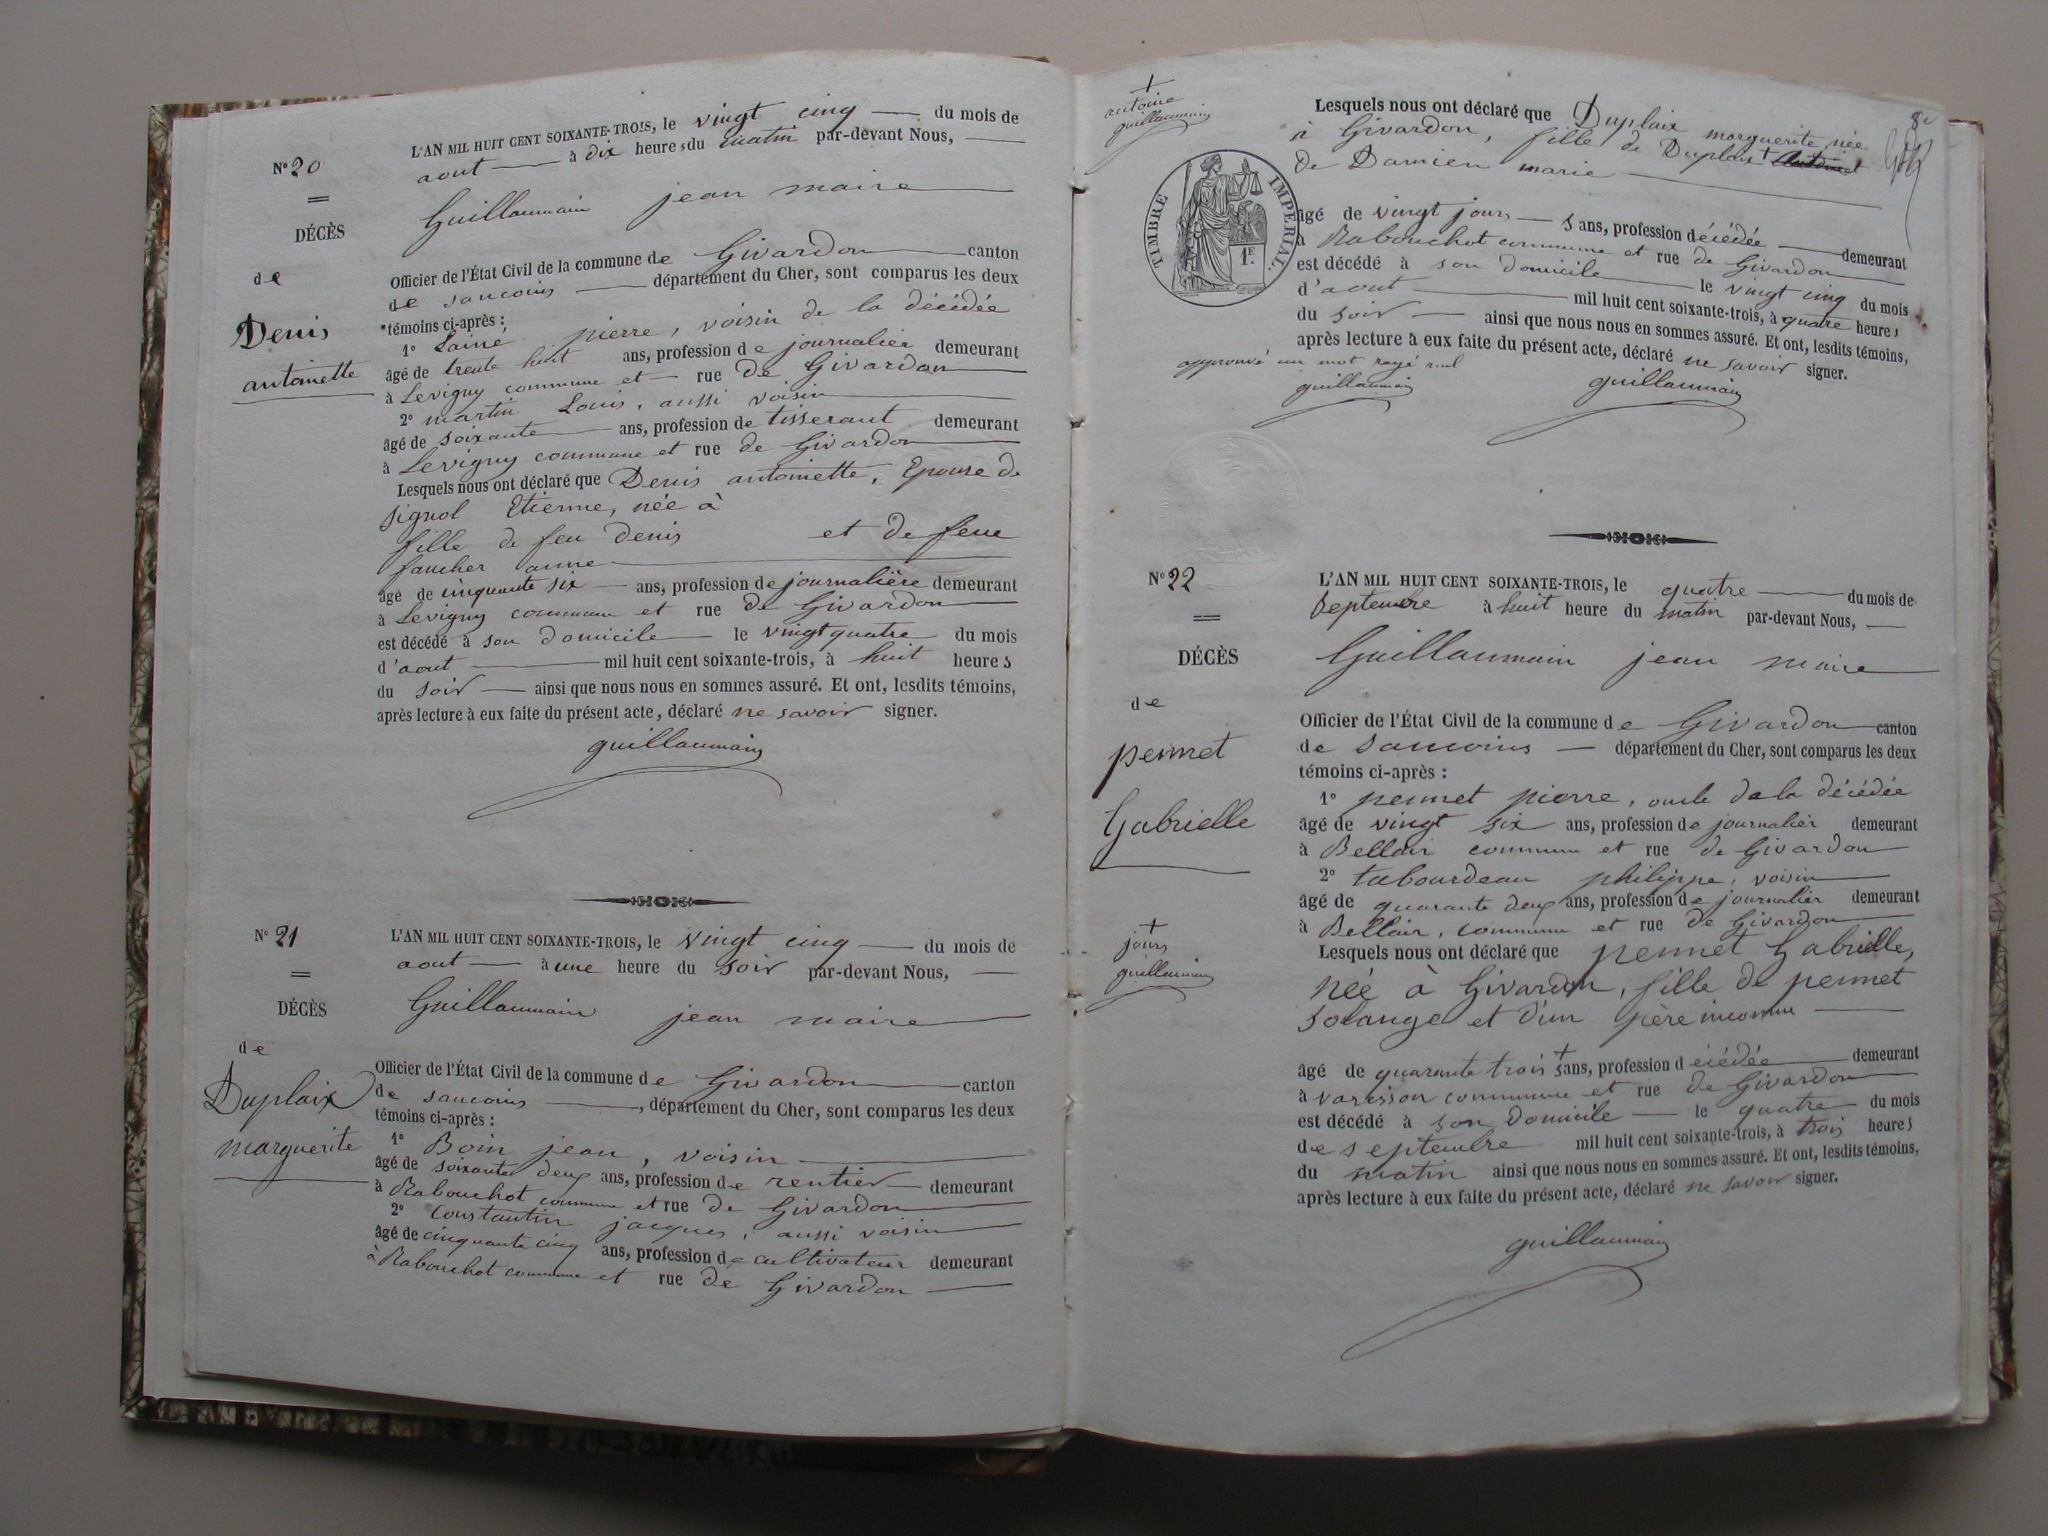 N° 20
DÉCÈS
de
Denis
antoinette
L'AN MIL HUIT CENT SOIXANTE-TROIS, le vingt cinq du mois de
aout à dix heures du matin par-devant Nous,
Guillaumain jean maire
Officier de l'État Civil de la commune de Givardon canton
de sancoins département du Cher, sont comparus les deux
témoins ci-après :
1° Lainé pierre, voisin de la décédée
âgé de trente huit ans, profession de journalier demeurant
à Levigny commune et rue de Givardon
2° martin Louis, aussi voisin
âgé de soixante ans, profession de tisserant demeurant
à Levigny commune et rue de Givardon
Lesquels nous ont déclaré que Denis antoinette, Epouse de
signol Etienne, née à
fille de feu denis et de feue
faucher anne
âgé de cinquante six ans, profession de journalière demeurant
à Levigny commune et rue de Givardon
est décédé à son domicile le vingt quatre du mois
d'aout mil huit cent soixante-trois, à huit heures
du soir ainsi que nous nous en sommes assuré. Et ont, lesdits témoins,
après lecture à eux faite du présent acte, déclaré ne savoir signer.
guillaumain
N° 21
DÉCÈS
de
Duplaix
marguerite
L'AN MIL HUIT CENT SOIXANTE-TROIS, le vingt cinq du mois de
aout à une heure du soir par-devant Nous,
Guillaumain jean maire
Officier de l'État Civil de la commune de Givardon canton
de sancoins, département du Cher, sont comparus les deux
témoins ci-après :
1° Boin jean, voisin
âgé de soixante deux ans, profession de rentier demeurant
à Rabouchot commune et rue de Givardon
2° Constantin jacques, aussi voisin
âgé de cinquante cinq ans, profession de cultivateur demeurant
à Rabouchot commune et rue de Givardon
+
antoine
guillaumain
TIMBRE IMPERIAL.
1F.
Lesquels nous ont déclaré que Duplaix marguerite née
à Givardon, fille de Duplaix + Antoine
de Damien marie
âgé de vingt jours s ans, profession décédée demeurant
à Rabouchot commune et rue de Givardon
est décédé à son domicile le vingt cinq du mois
d'aout mil huit cent soixante-trois, à quatre heures
du soir ainsi que nous nous en sommes assuré. Et ont, lesdits témoins,
après lecture à eux faite du présent acte, déclaré ne savoir signer.
approuvé un mot rayé nul
guillaumain guillaumain
N° 22
DÉCÈS
de
pennet
Gabrielle
+
jours
guillaumain
L'AN MIL HUIT CENT SOIXANTE-TROIS, le quatre du mois de
Septembre à huit heure du matin par-devant Nous,
Guillaumain jean maire
Officier de l'État Civil de la commune de Givardon canton
de sancoins département du Cher, sont comparus les deux
témoins ci-après :
1° pennet pierre, oncle de la décédée
âgé de vingt six ans, profession de journalier demeurant
à Bellair commune et rue de Givardon
2° tabourdeau philippe, voisin
âgé de quarante deux ans, profession de journalier demeurant
à Bellair, commune et rue de Givardon
Lesquels nous ont déclaré que pennet Gabrielle,
née à Givardon, fille de pennet
solange et d'un père inconnu
âgé de quarante trois + sans, profession décédée demeurant
à varisson commune et rue de Givardon
est décédé à son domicile le quatre du mois
de septembre mil huit cent soixante-trois, à trois heures
du matin ainsi que nous nous en sommes assuré. Et ont, lesdits témoins,
après lecture à eux faite du présent acte, déclaré ne savoir signer.
guillaumain